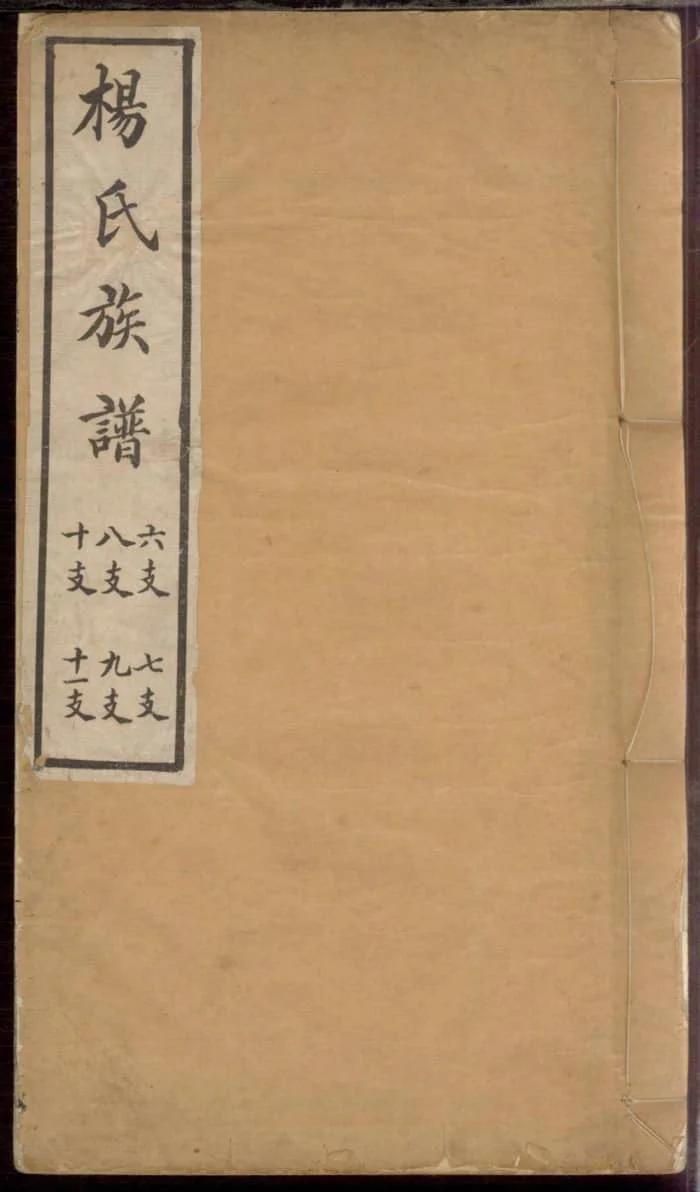 楊氏族譜
六支 七支
八支 九支
十支 十一支